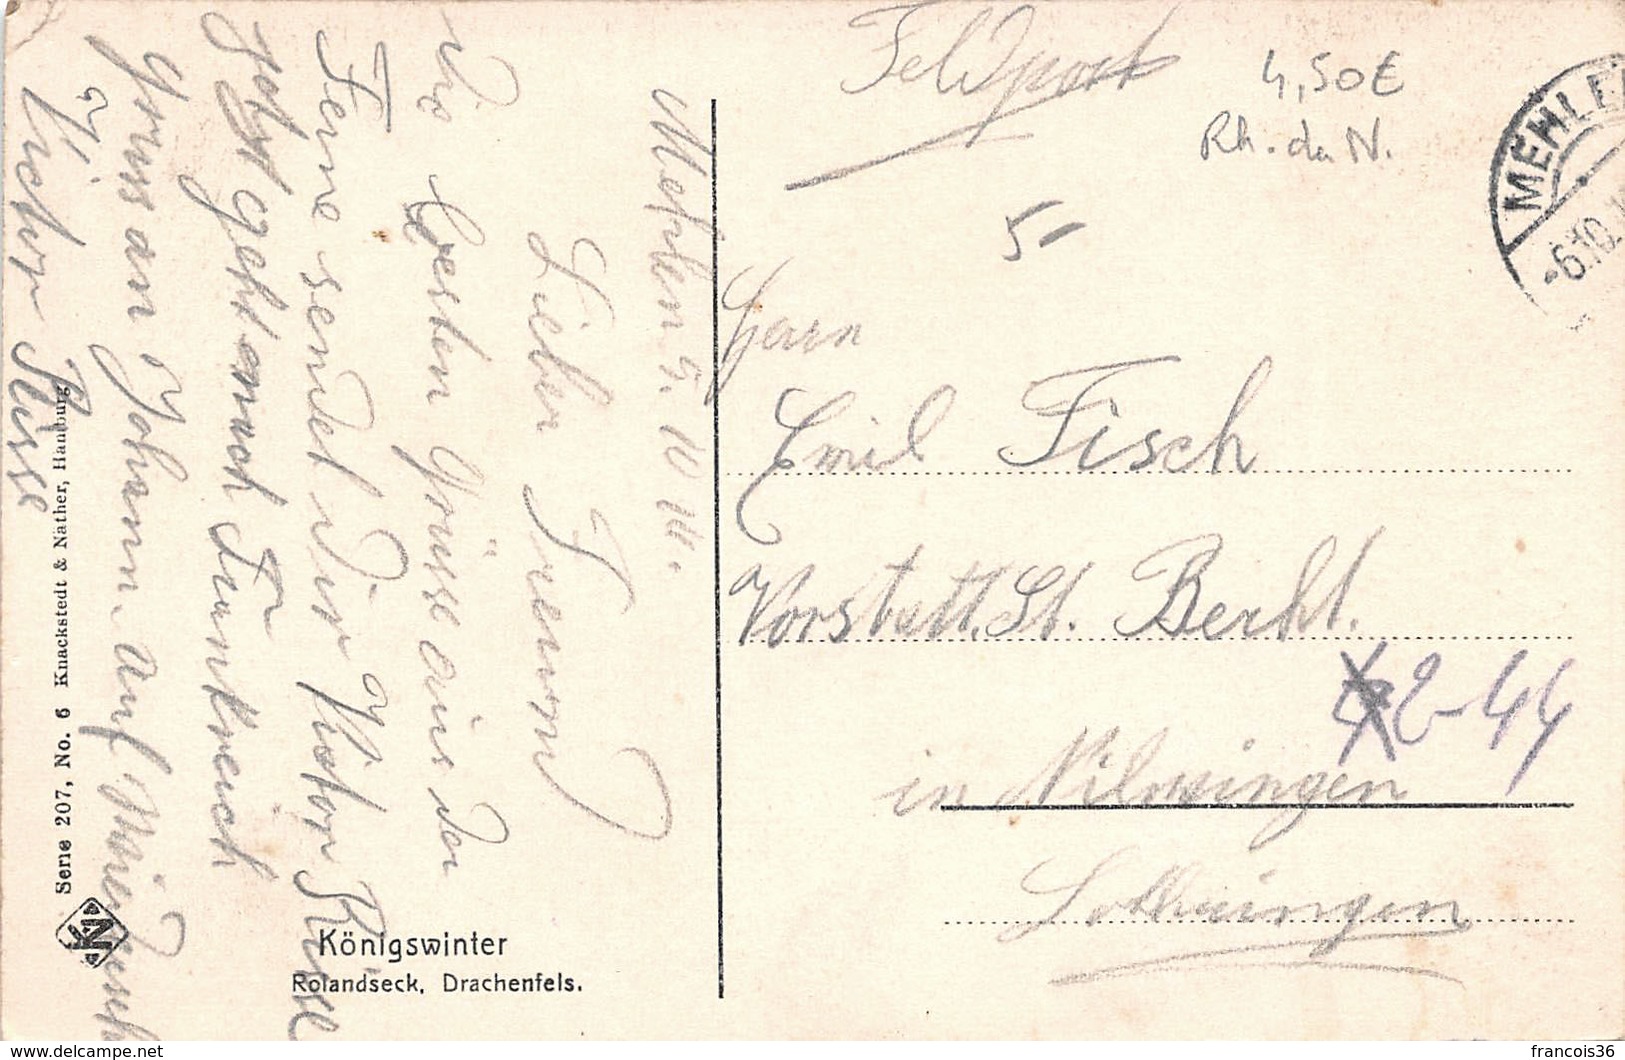 Feldpost
4,50€
Rh. du N.
5-
MEHLE
-6.10.1
Mehlen 5. 10 14.
Lieber Freund
Die besten Grüsse aus der
Ferne sendet dir Victor Küsse
Jetzt geht es nach Frankreich
Gruss an Johann auf
Victor Küsse
Herrn
Emil Fisch
Vorstatt. St. Bercht.
2-44
in Nilvingen
Lothringen
Serie 207, No. 6 Knackstedt & Näther, Hamburg
KN
Königswinter
Rolandseck, Drachenfels.
francois36